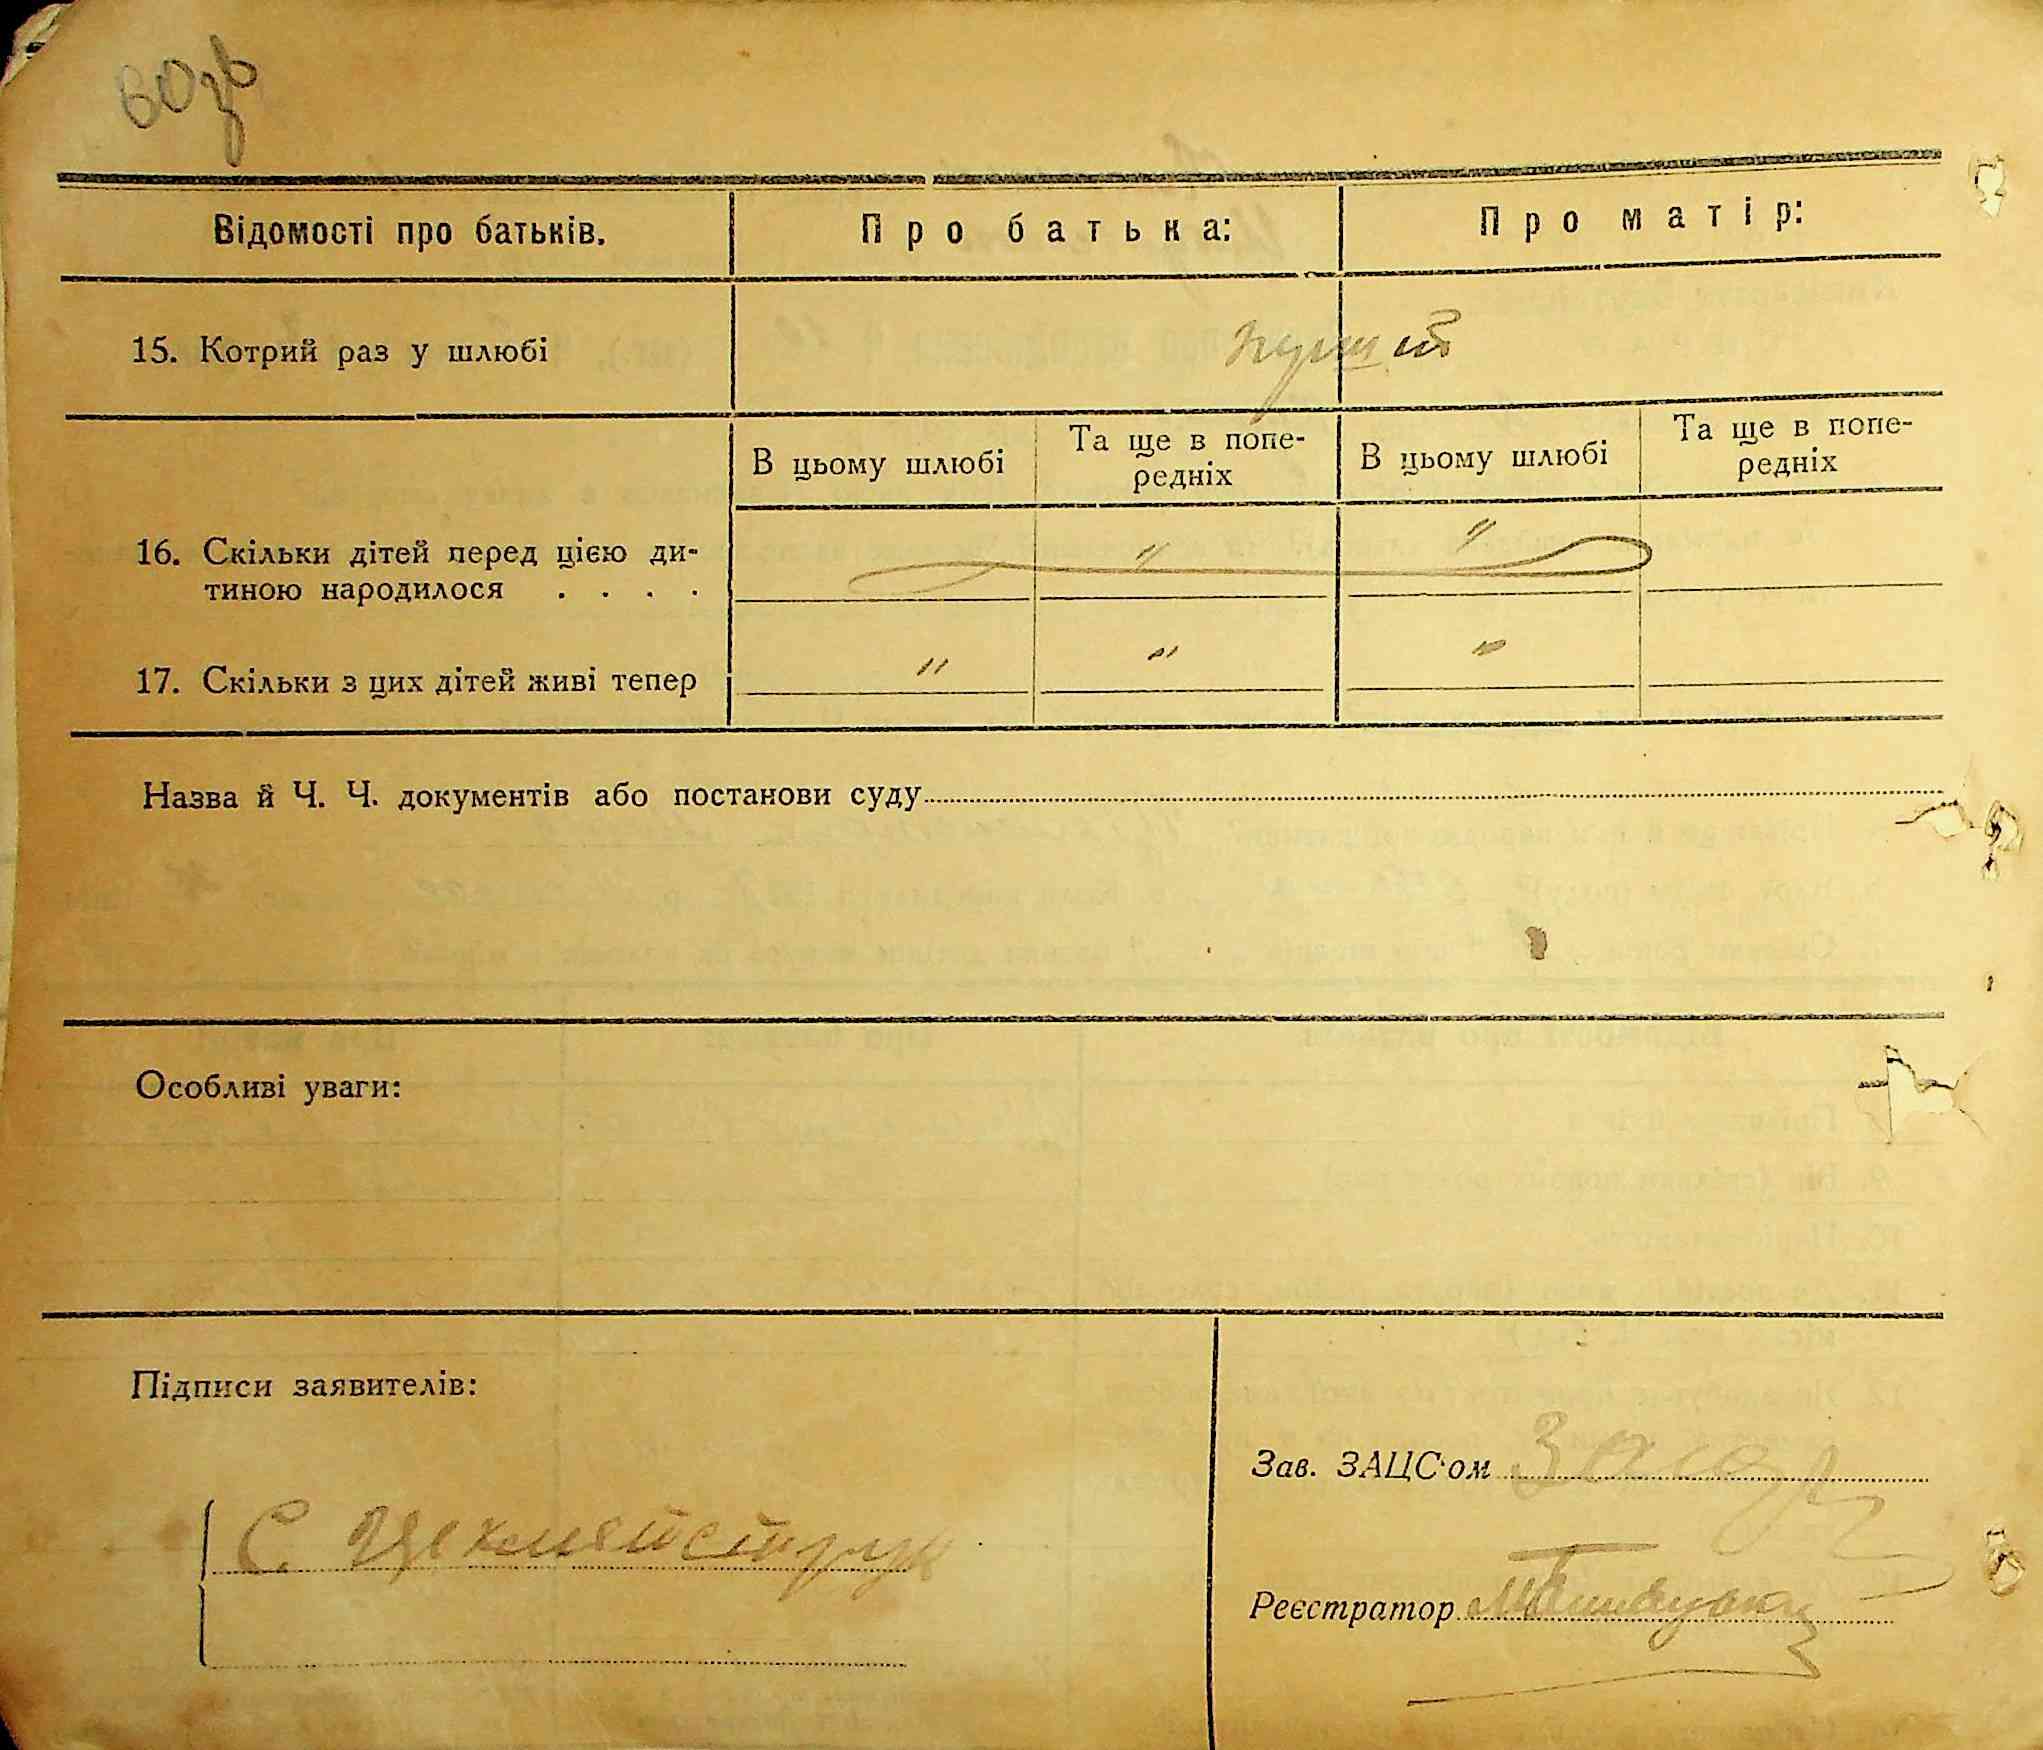 60зв
Відомості про батьків. Про батька: Про матір:
15. Котрий раз у шлюбі перший
В цьому шлюбі Та ще в попе- В цьому шлюбі Та ще в попе-
редніх редніх
16. Скільки дітей перед цією ди- " "
тиною народилося . . . .
17. Скільки з цих дітей живі тепер " " "
Назва й Ч. Ч. документів або постанови суду
Особливі уваги:
Підписи заявителів:
Зав. ЗАЦС'ом
С. Цехмейструк
Реєстратор